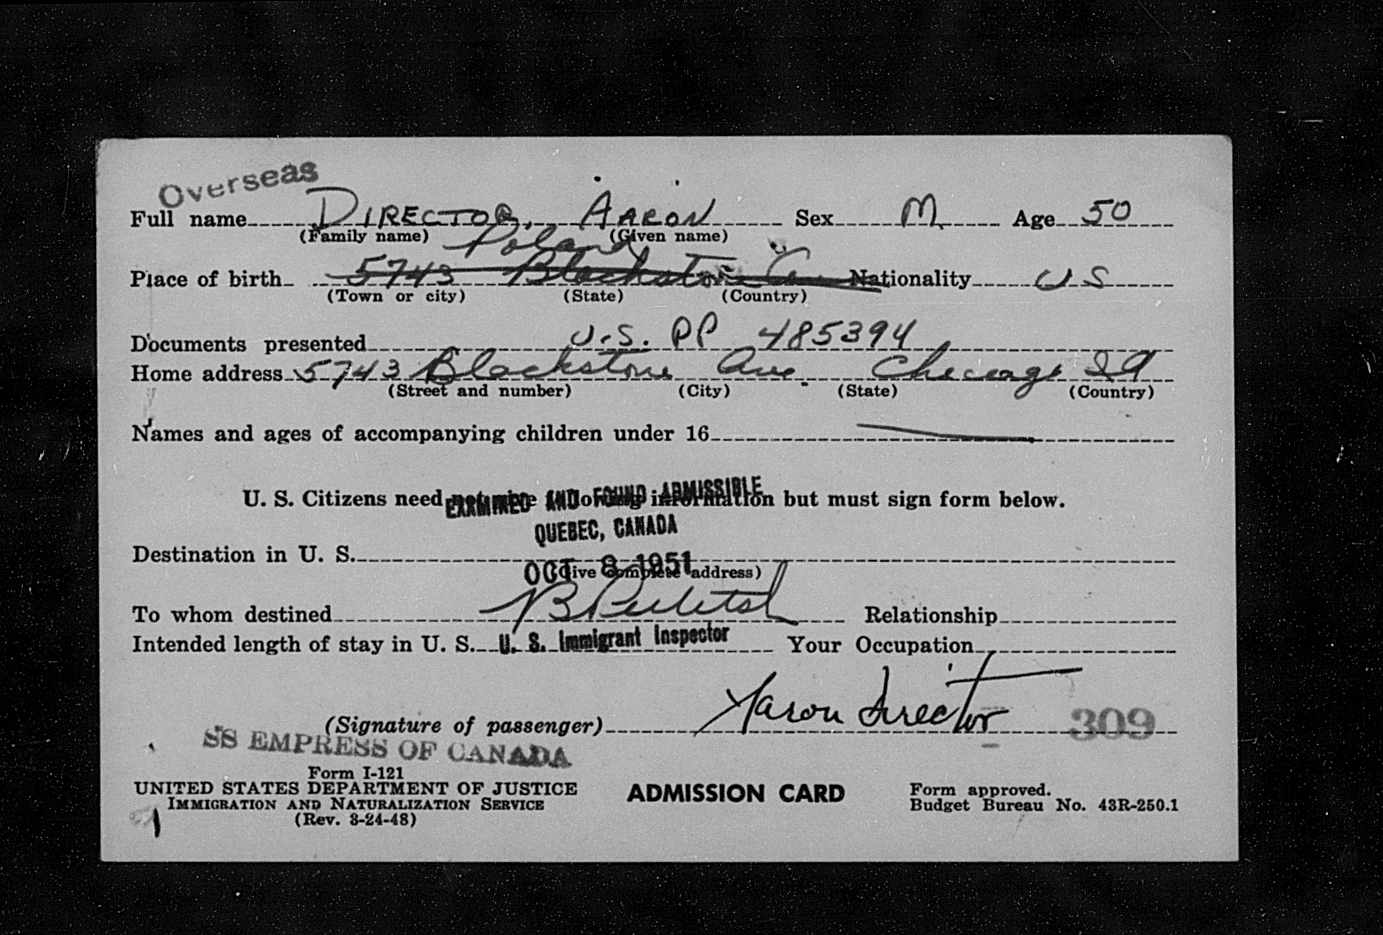 Overseas
Full name DIRECTOR, AARON Sex M Age 50
(Family name) (Given name)
Poland
Place of birth 5743 Blackstone Av Nationality US
(Town or city) (State) (Country)
Documents presented U.S. PP 485394
Home address 5743 Blackstone Ave Chicago Ill
(Street and number) (City) (State) (Country)
Names and ages of accompanying children under 16
U. S. Citizens need information but must sign form below.
EXAMINED AND FOUND ADMISSIBLE
QUEBEC, CANADA
Destination in U. S.
OCT 8 1951
(Give complete address)
To whom destined Relationship
Intended length of stay in U. S. U. S. Immigrant Inspector Your Occupation
(Signature of passenger) Aaron Director 309
SS EMPRESS OF CANADA
Form I-121
UNITED STATES DEPARTMENT OF JUSTICE ADMISSION CARD Form approved.
IMMIGRATION AND NATURALIZATION SERVICE Budget Bureau No. 43R-250.1
(Rev. 8-24-48)